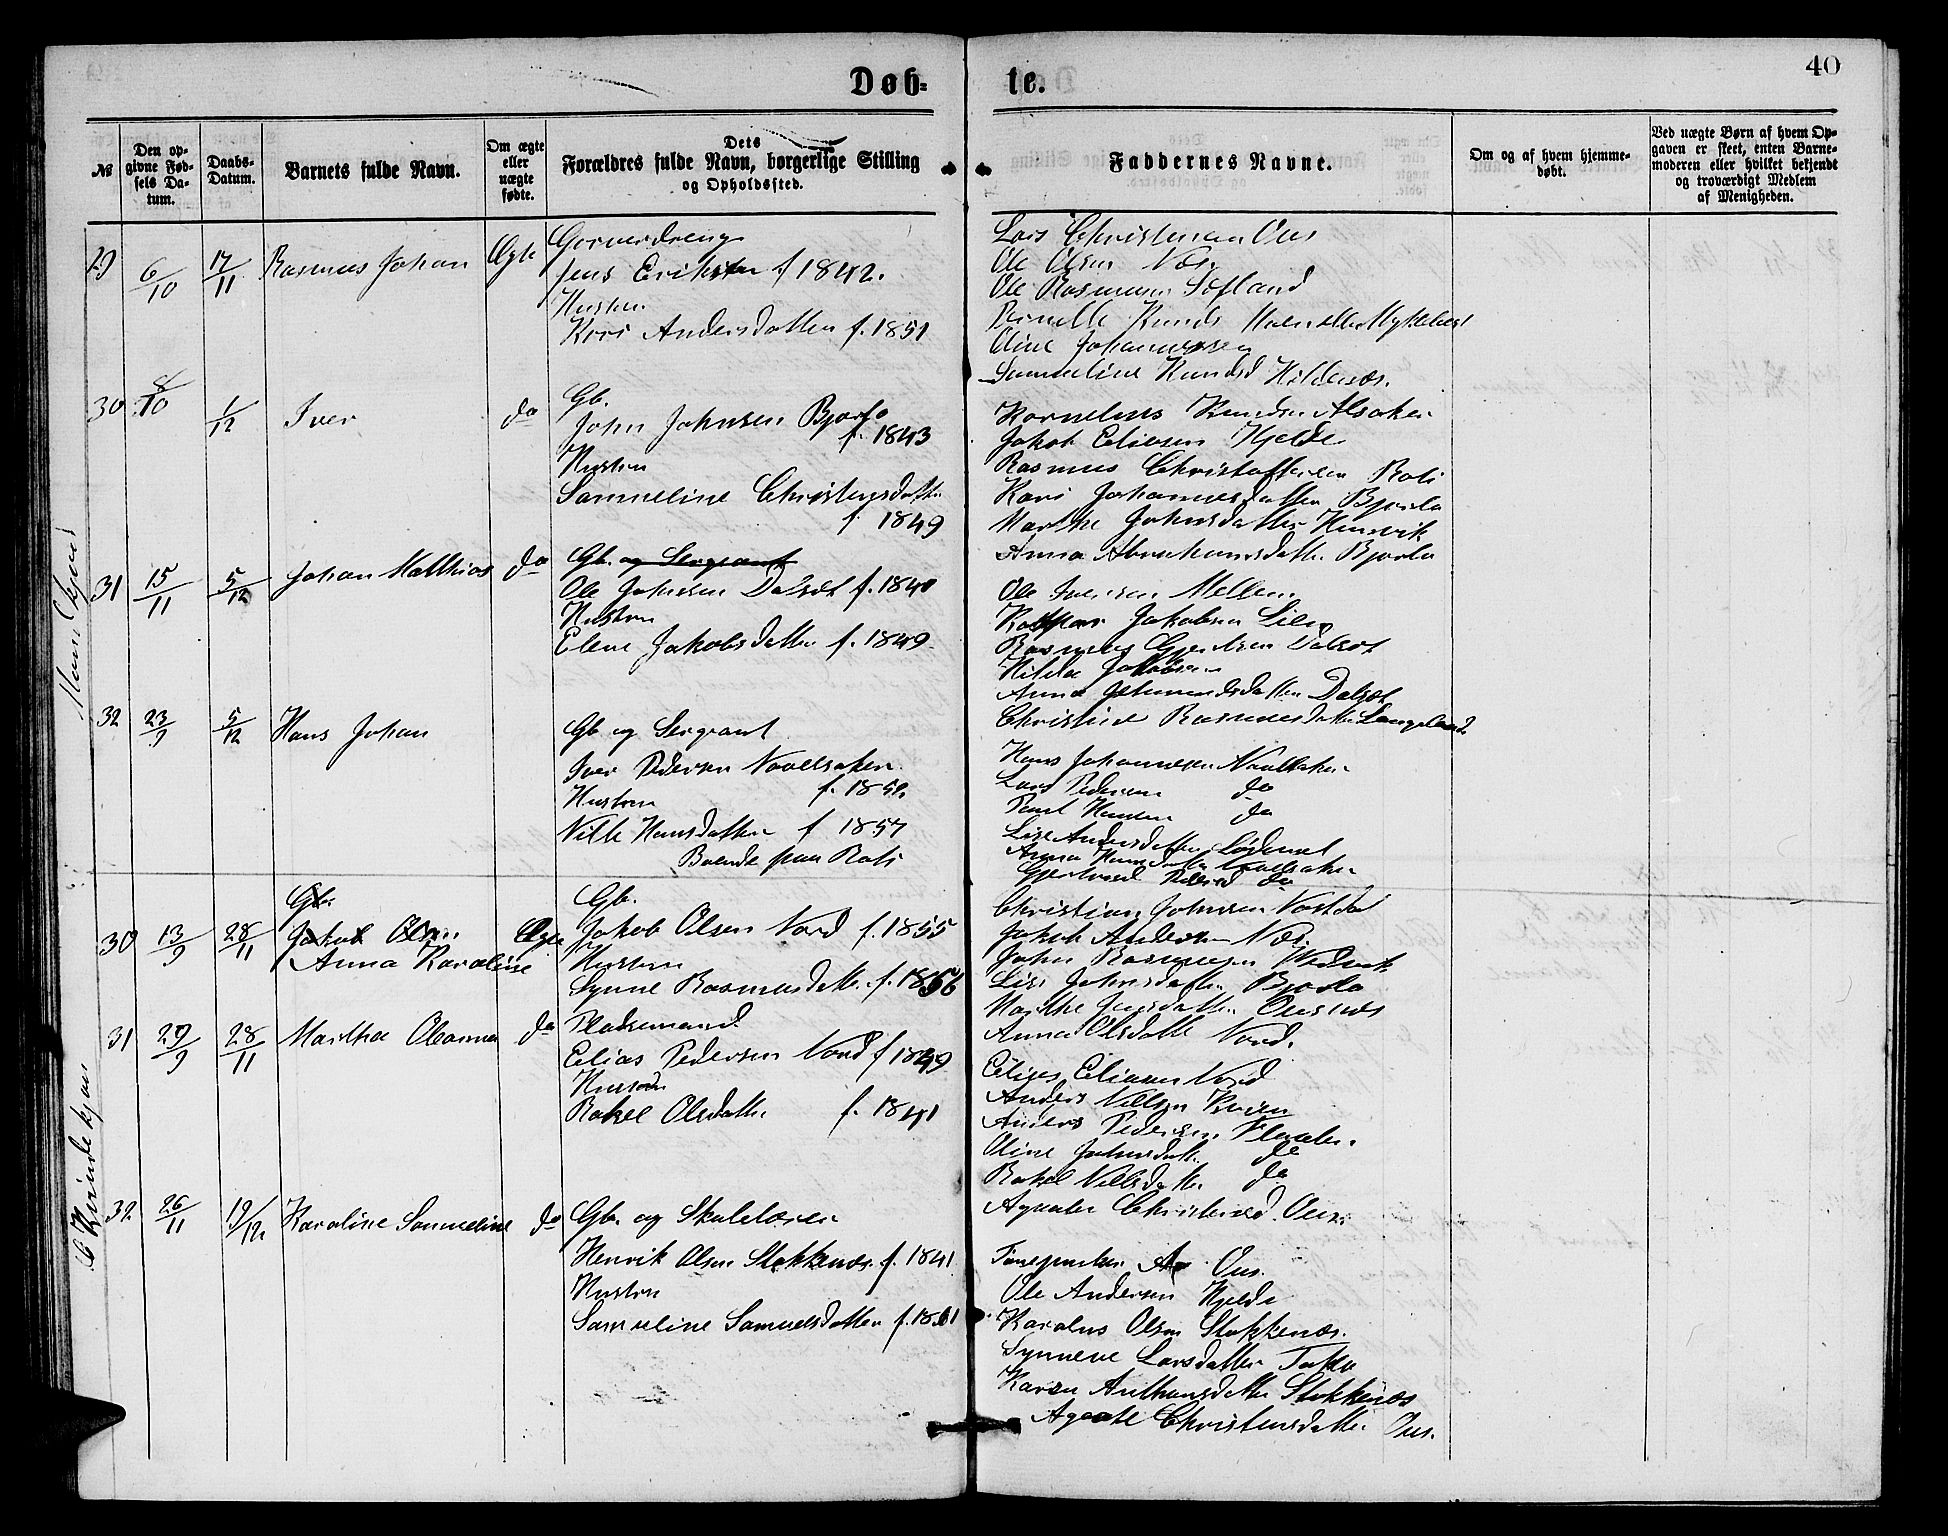 Døb-
te.
40
№
Den op-
givne Fød-
sels Da-
tum.
Daabs-
Datum.
Barnets fulde Navn.
Om ægte
eller
uægte
fødte.
Dets
Forældres fulde Navn, borgerlige Stilling
og Opholdssted.
Faddernes Navne.
Om og af hvem hjemme-
døbt.
Ved uægte Børn af hvem Op-
gaven er skeet, enten Barne-
moderen eller hvilket bekjendt
og troværdigt Medlem
af Menigheden.
Mandkjøn
29 6/10 17/11 Rasmus Johan Ægte
Jens Eriksen f 1842.
Hustru
Kari Andersdatter f. 1851
Lars Christensen Ous
Ole Olsen Næs.
Ole Rasmussen
Pernille Knuds
Oline Johannessen
Samueline Knudsd Hildenæs.
30 8/10 1/12 Iver do
Gb.
John Johnsen Bjørlo
f. 1843
Hustru
Samueline Christensdatter
f. 1849
Kornelius Knudsen Alsaker
Jakob Eliasen Hjelde
Rasmus Christoffersen Roti
Kari Johannesdatter Bjørlo
Marthe Johnsdatter Hennvik
Anna Abrahamsdatter Bjørlo
31 15/11 5/12 Johan Matthias do
Gb. og Sergeant
Ole Johnsen Dalsæt f. 1840
Hustru
Elene Jakobsdatter f. 1849.
Ole Iversen Mellem
Kaspar Jakobsen Lien
Rasmus Gjertsen Dalsæt
Hilda Jakobsen
Anna Dalsæt
Christine Rasmusdatter Langeland
32 23/9 5/12 Hans Johan
Gb og Sergeant
Iver Pedersen Navelsaker
Hustru
Nille Hansdatter f 1857
Boende paa Roti
Hans Johannesen Navelsaker
Lars Pedersen do
Paul Hansen do
Lise Andersdatter Lødemel
Anna Hansdatter Navelsaker
Gjertrud Pedersd do
Kvindekjøn
30 13/9 28/11
Gb.
Jakob Olsen
Anna Karoline Ægte
Gb.
Jakob Olsen Nord f. 1855
Hustru
Synne Rasmusdatter f. 1856
Christian Johnsen
Jakob Andersen Næs.
John Rasmussen
Lise Johnsdatter Bjørlo
Marthe Jensdatter Ousnæs
Anna Olsdatter Nord.
31 29/9 28/11 Martha Oleanna do
Pladsemand
Elias Pedersen Nord f 1849
Hustru
Rakel Olsdatter f. 1841
Elias Eliasen Nord
Anders Nilsen
Anders Pedersen
Oline Johnsdatter do
Rakel Nilsdatter do
Agathe Christensd. Ous.
32 26/11 19/12 Karoline Samueline do
Gb. og Skolelærer
Henrik Olsen Stokkenæs. f. 1841
Hustru
Samueline Samuelsdatter f. 1861
Ous.
Ole Andersen Hjelde
Karolus Olsen Stokkenæs.
Synneve Larsdatter Takle
Karen Anthonsdatter Stokkenæs
Agathe Christensdatter Ous.